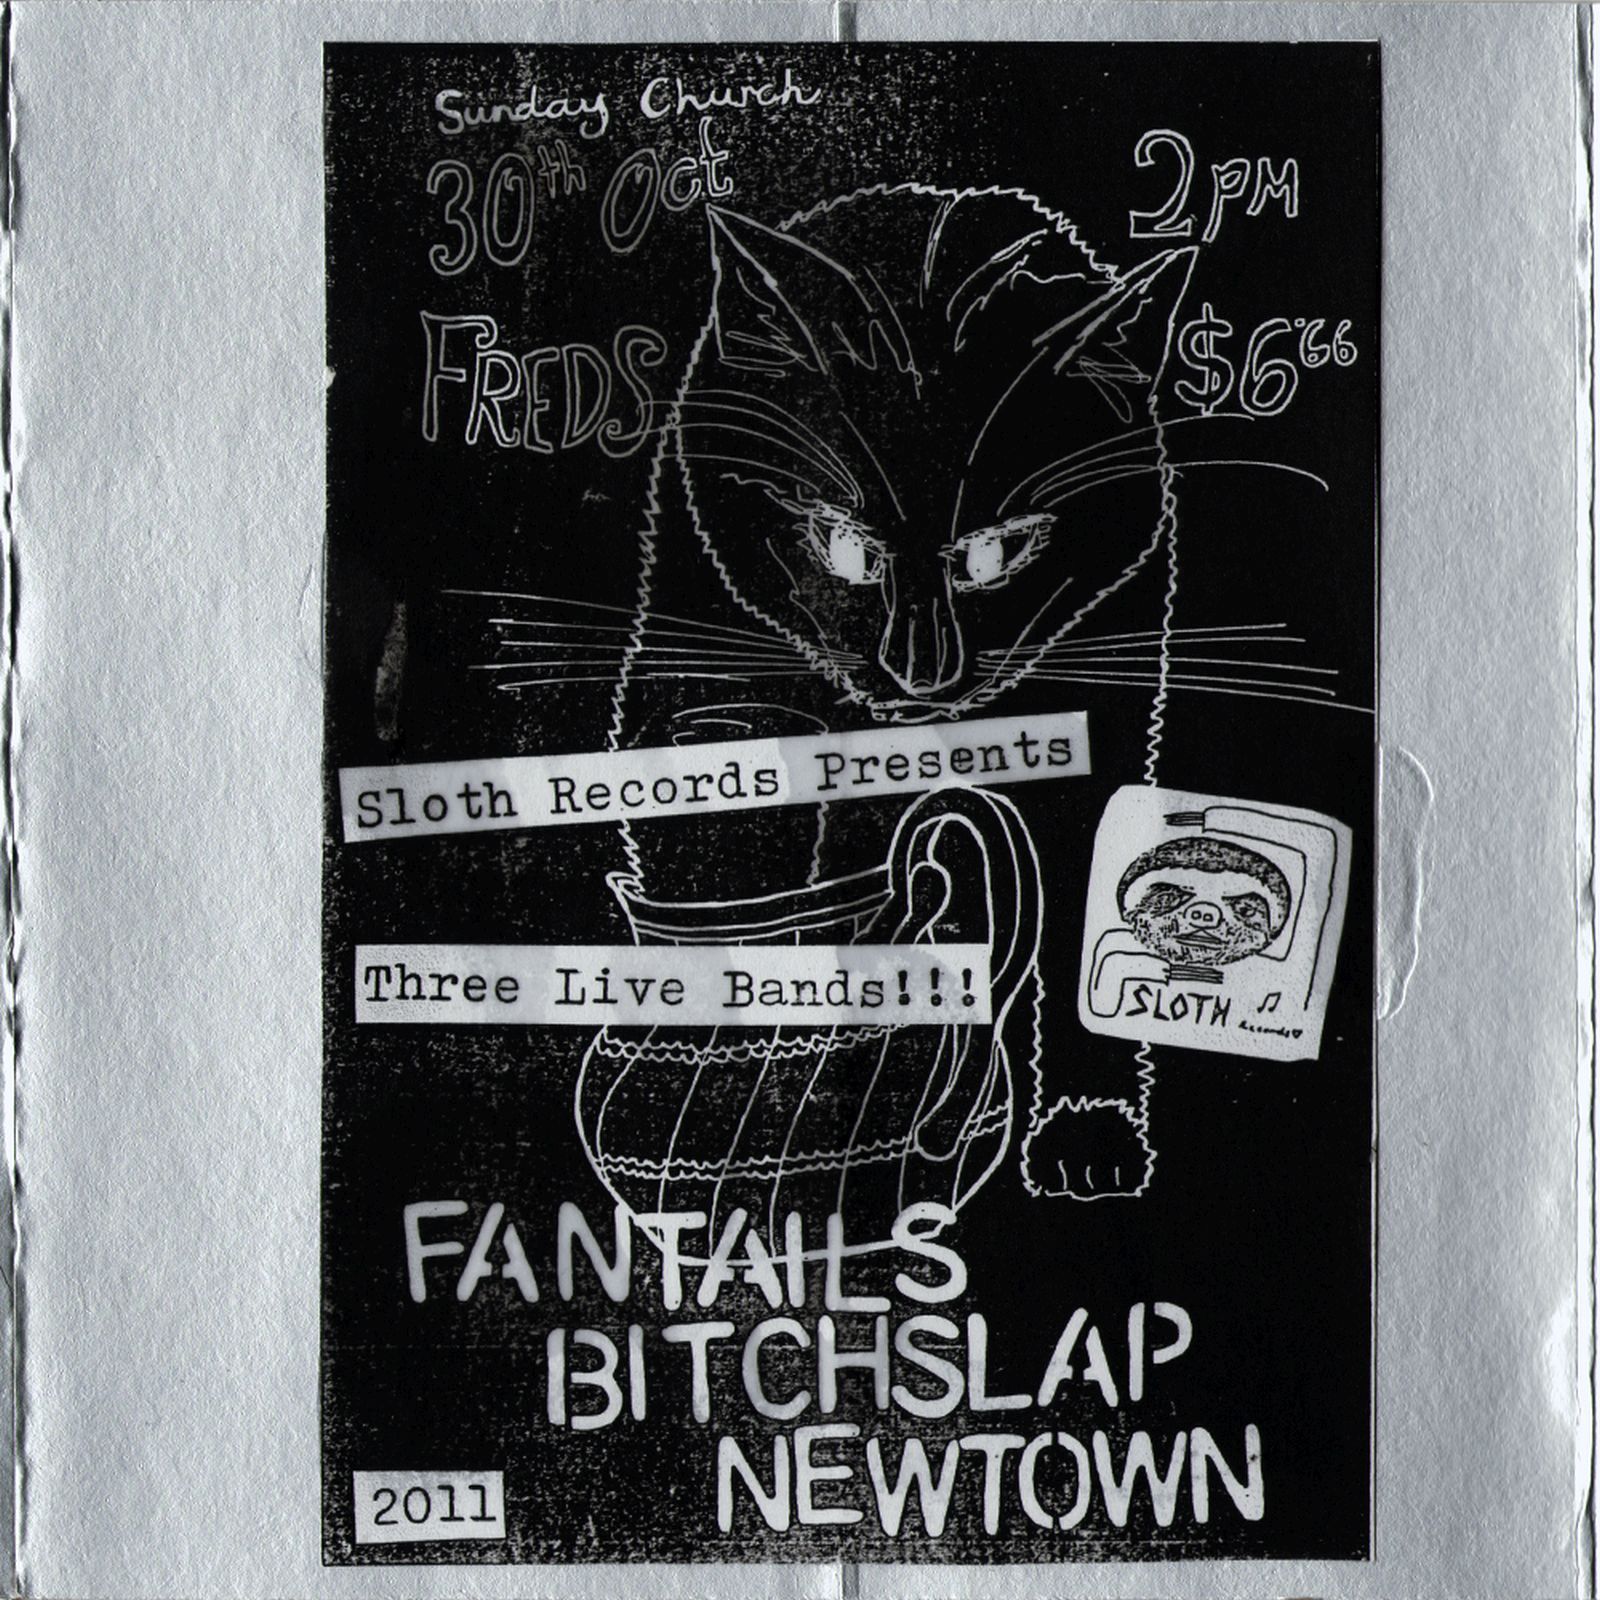 Sunday Church
30th Oct
2pm
FREDS
$6.66
Sloth Records Presents
Three Live Bands!!!
SLOTH
Records
FANTAILS
BITCHSLAP
NEWTOWN
2011